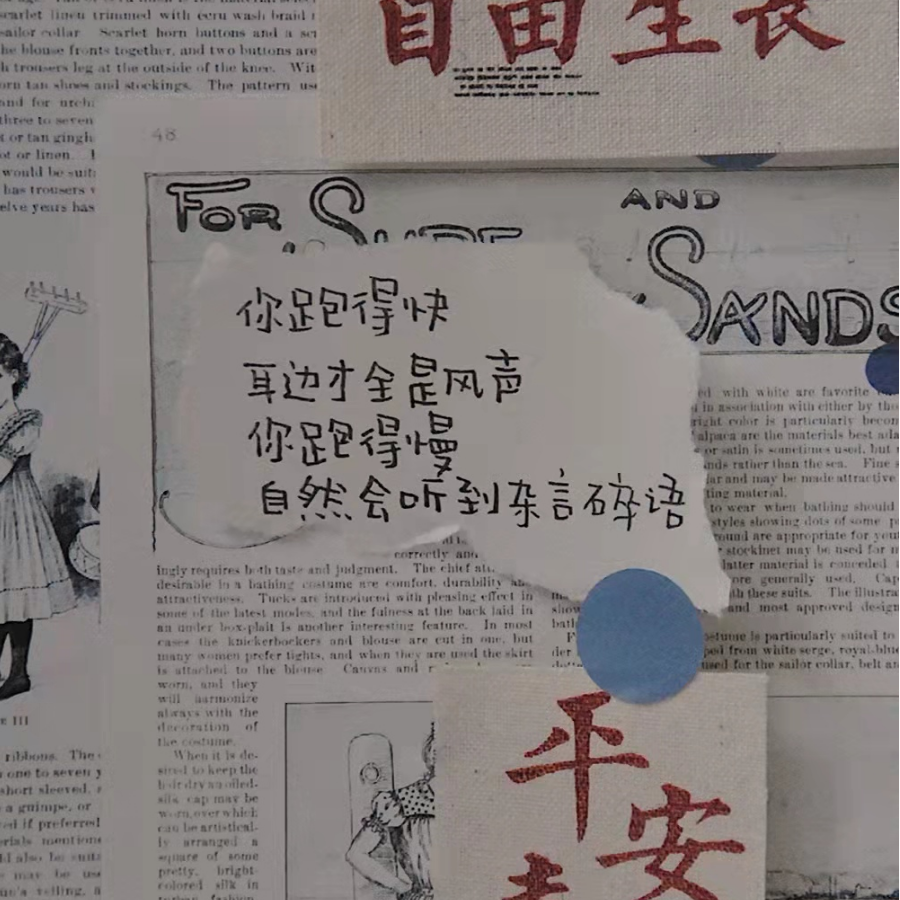 scarlet linen trimmed with ecru wash braid
sailor collar. Scarlet horn buttons and a
the blouse fronts together, and two buttons are
trousers leg at the outside of the knee.
tan shoes and stockings. The pattern
and for
three to seven
or tan
or linen.
would be
has trousers
years has
自由生长
48
FOR AND
SANDS
你跑得快
耳边才全是风声
你跑得慢
自然会听到杂言碎语
with white are favorite
in association with either by
color is particularly
alpaca are the materials best
or satin is sometimes used, but
rather than the sea. Fine
and may be made attractive
material.
to wear when bathing should
styles showing dots of some
are appropriate for
stockinet may be used for
latter material is conceded
generally used.
these suits. The
and most approved
correctly and
ingly requires both taste and judgment. The chief
desirable in a bathing costume are comfort, durability
attractiveness. Tucks are introduced with pleasing effect in
some of the latest modes, and the fulness at the back laid in
an under box-plait is another interesting feature. In most
cases the knickerbockers and blouse are cut in one, but
many women prefer tights, and when they are used the skirt
is attached to the blouse. Canvas and
worn, and they
will harmonize
always with the
decoration of
the costume.
When it is de-
sired to keep the
hair dry an oiled-
silk cap may be
worn, over which
can be artistical-
ly arranged a
square of some
pretty, bright-
colored silk in
is particularly suited to
from white serge,
used for the sailor collar, belt
III
ribbons. The
one to seven
short sleeved,
a guimpe, or
if preferred
also be
may be
veiling,
平安